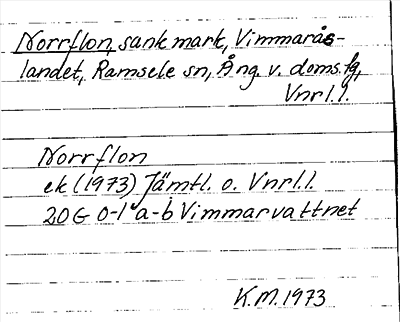 Norrflon, sank mark, Vimmarås-
landet, Ramsele sn, Ång. v. doms. fg,
Vnrl.l.
Norrflon
ek (1973) Jämtl. o. Vnrl.l.
20 G 0-1 a-b Vimmarvattnet
K.M. 1973